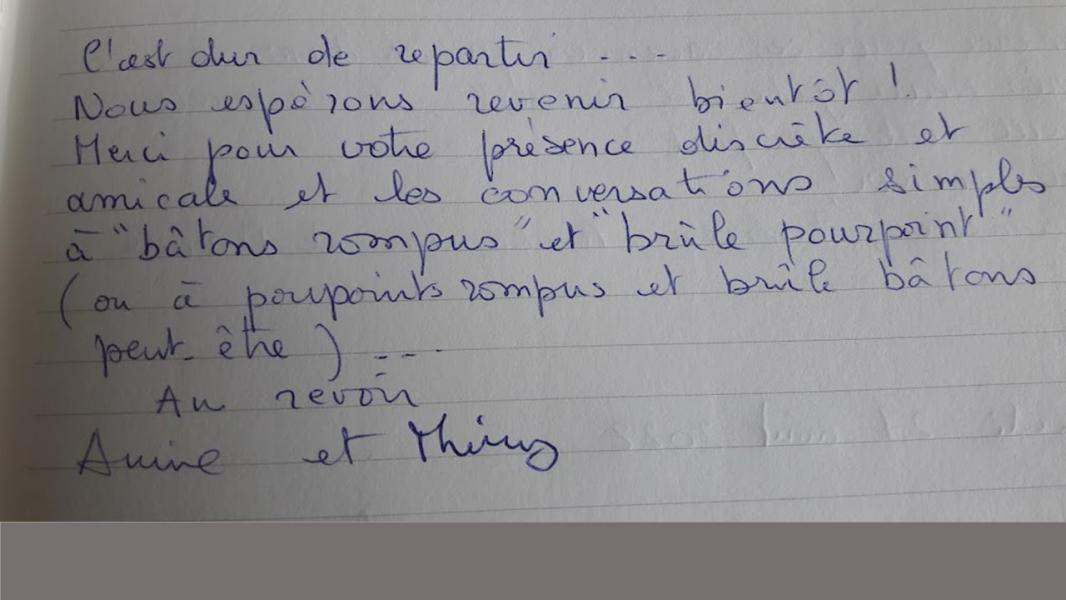 C'est dur de repartir ...
Nous espérons revenir bientôt !
Merci pour votre présence discrète et
amicale et les conversations simples
à "bâtons rompus" et "brûle pourpoint"
(ou à poupoints rompus et brûle bâtons
peut-être) ...
Au revoir
et